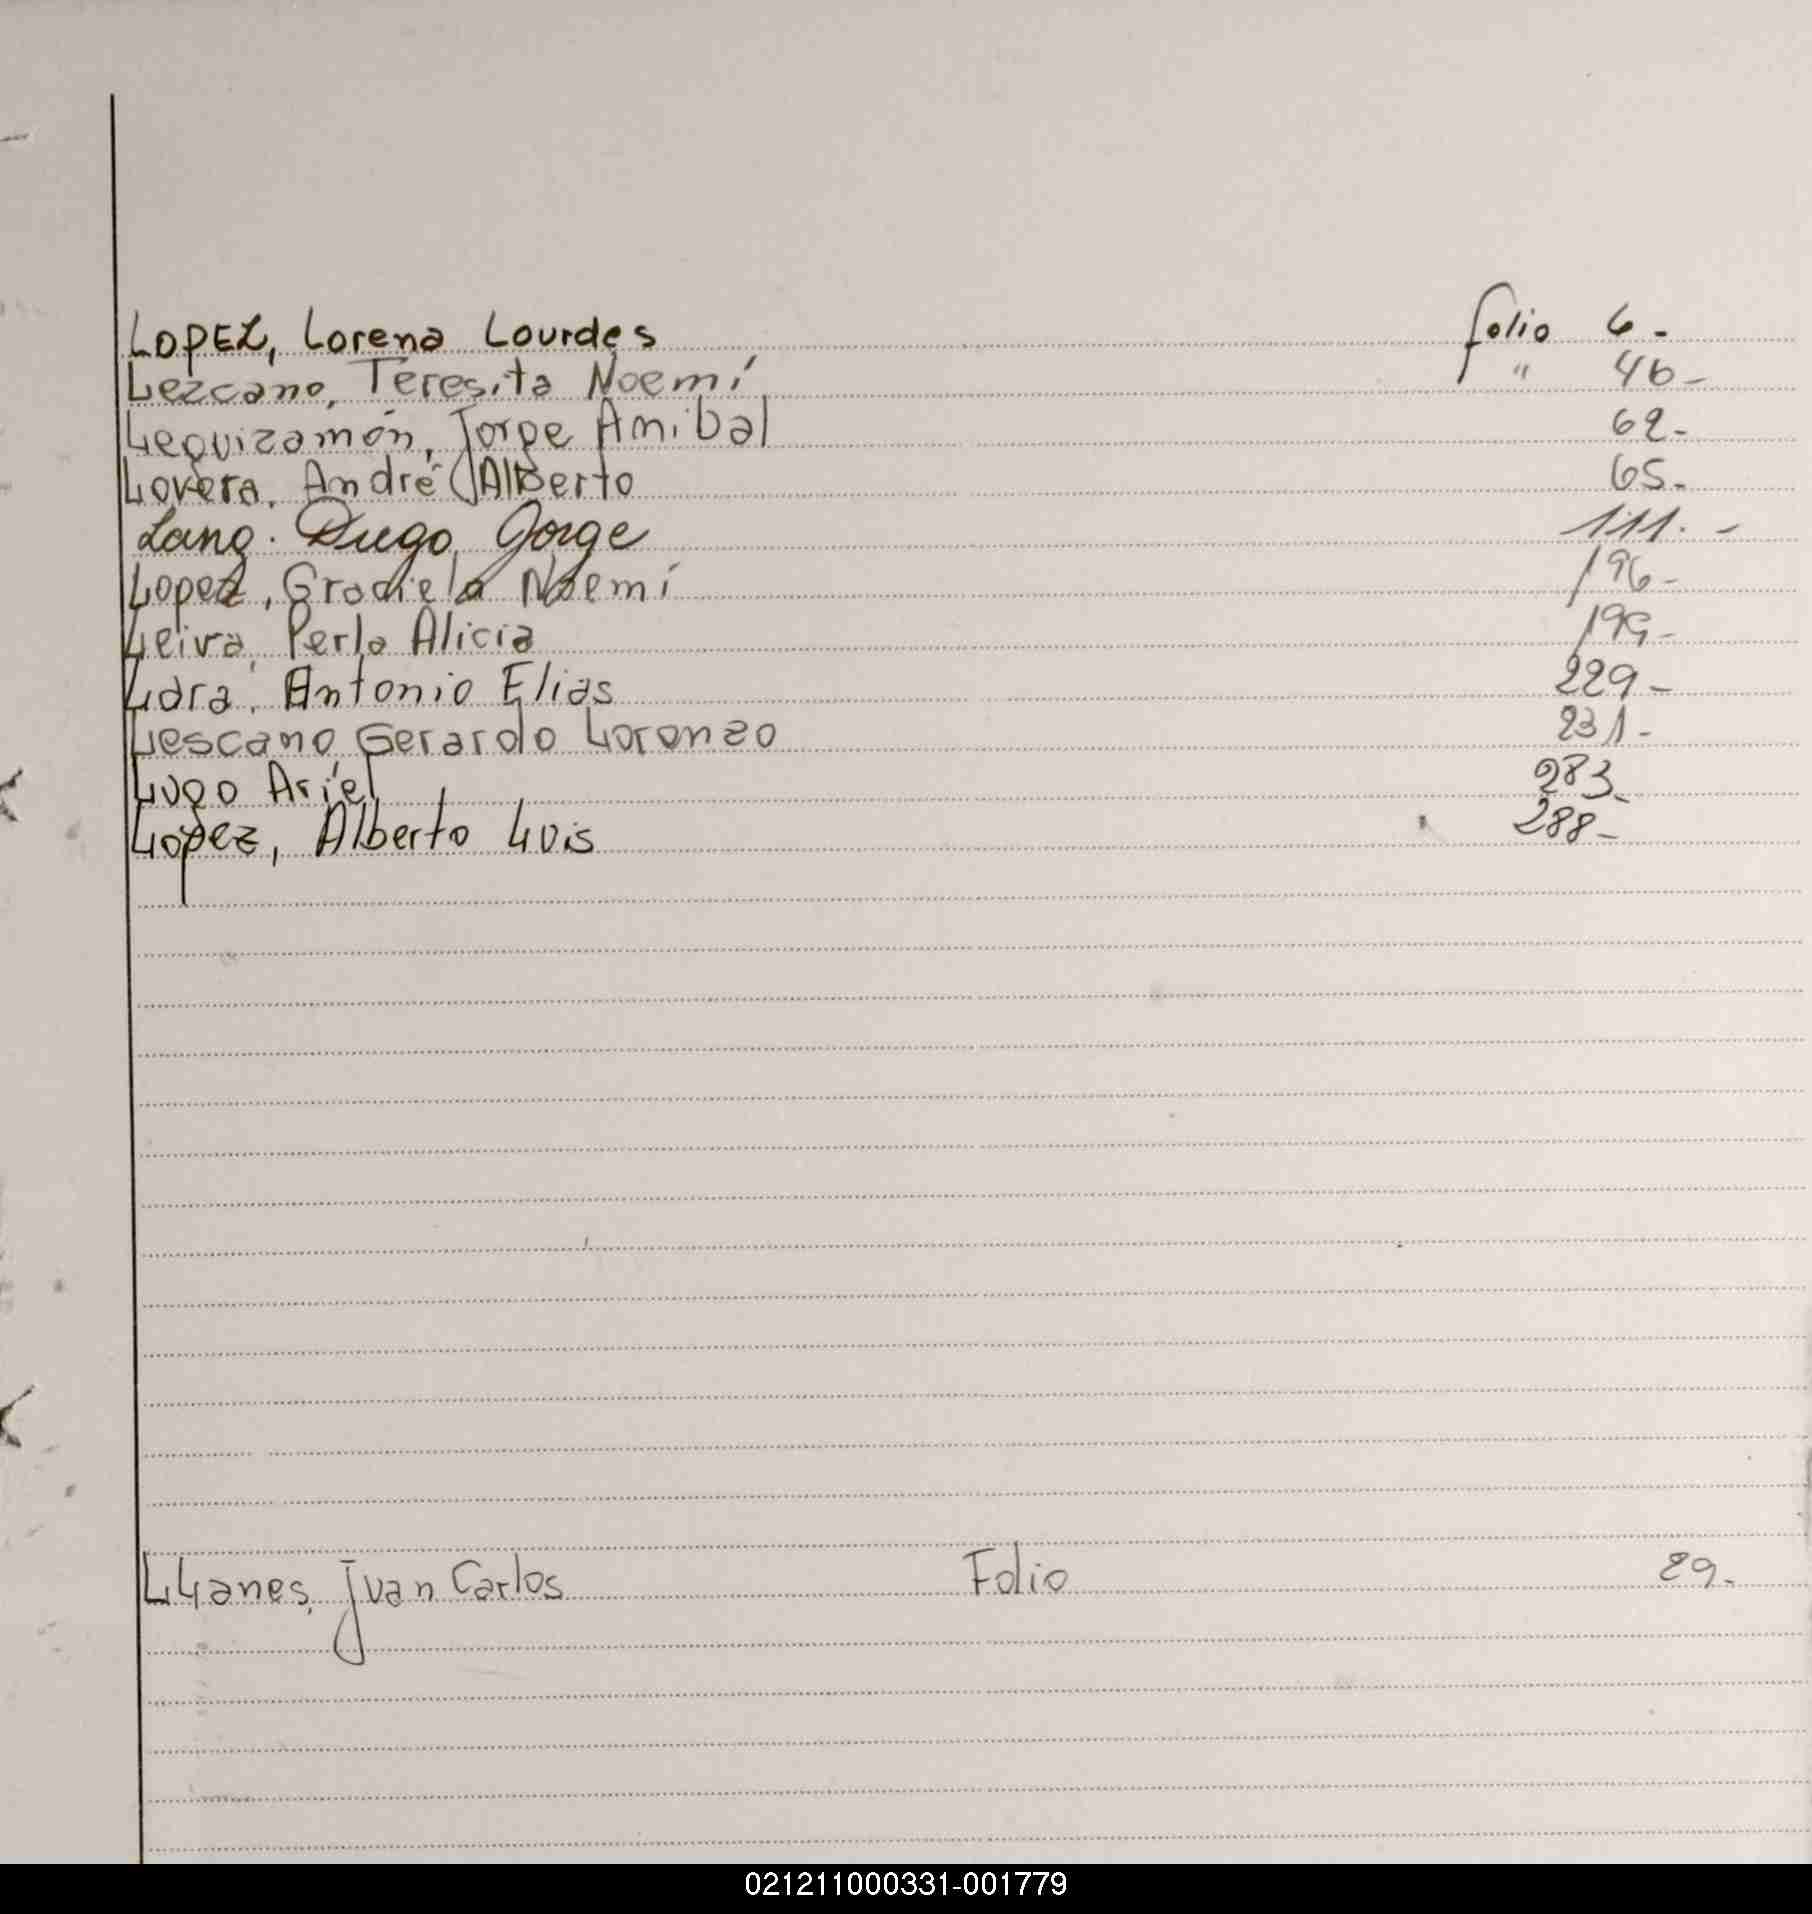 LOPEZ, Lorena Lourdes folio 6.-
Lezcano, Teresita Noemí " 46-
Leguizamón, Jorge Anibal 62-
Lovera, André Alberto 65-
Lang. Diego Jorge 111.-
Lopez, Graciela Noemí 196-
Leiva, Perla Alicia 199-
Lara, Antonio Elias 229-
Lescano Gerardo Lorenzo 231-
Lugo Ariel 283-
Lopez, Alberto Luis 288-
LLanes, Juan Carlos Folio 29-
021211000331-001779